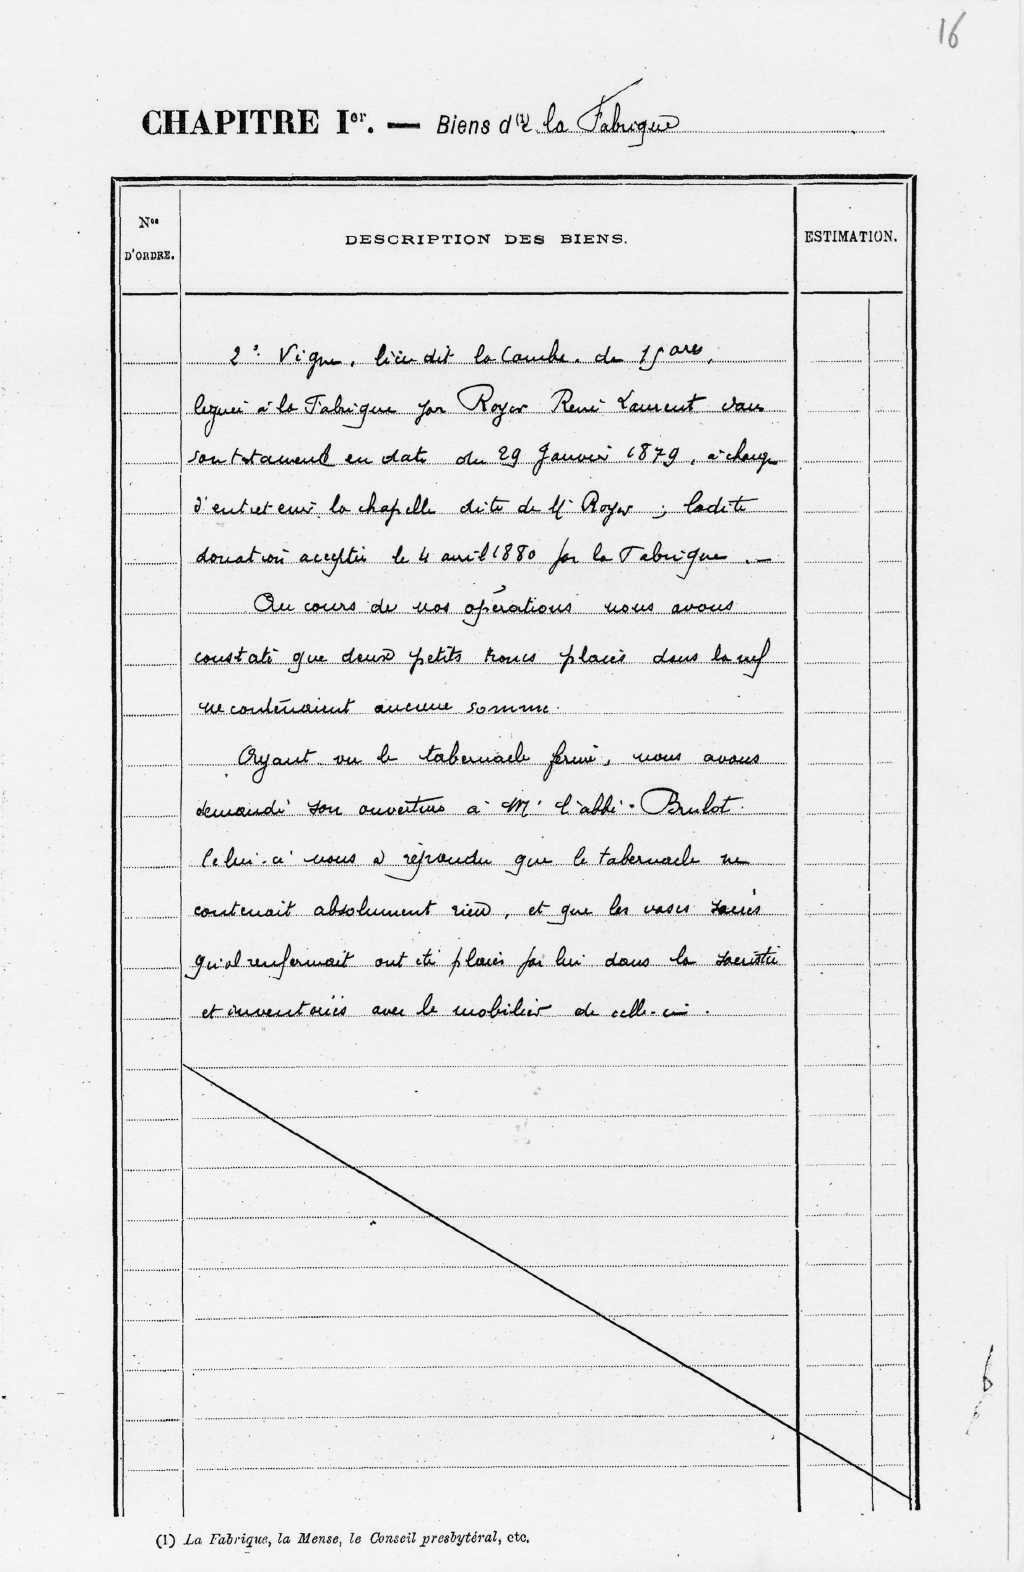 16
CHAPITRE Ier. — Biens d(1)e la Fabrique
Nos D'ORDRE.
DESCRIPTION DES BIENS.
ESTIMATION.
2° Vigne, lieu dit la Combe de 15 ares,
léguée à la Fabrique par Royer René Laurent dans
son testament en date du 29 Janvier 1879, à charge
d'entretenir la chapelle dite de Mr Royer ; ladite
donation acceptée le 4 avril 1880 par la Fabrique . —
Au cours de nos opérations nous avons
constaté que deux petits troncs placés dans la nef
ne contenaient aucune somme.
Ayant vu le tabernacle fermé, nous avons
demandé son ouverture à Mr l'abbé Brulot.
Celui-ci nous a répondu que le tabernacle ne
contenait absolument rien, et que les vases sacrés
qu'il renfermait ont été placés par lui dans la sacristie
et inventoriés avec le mobilier de celle-ci .
(1) La Fabrique, la Mense, le Conseil presbytéral, etc.